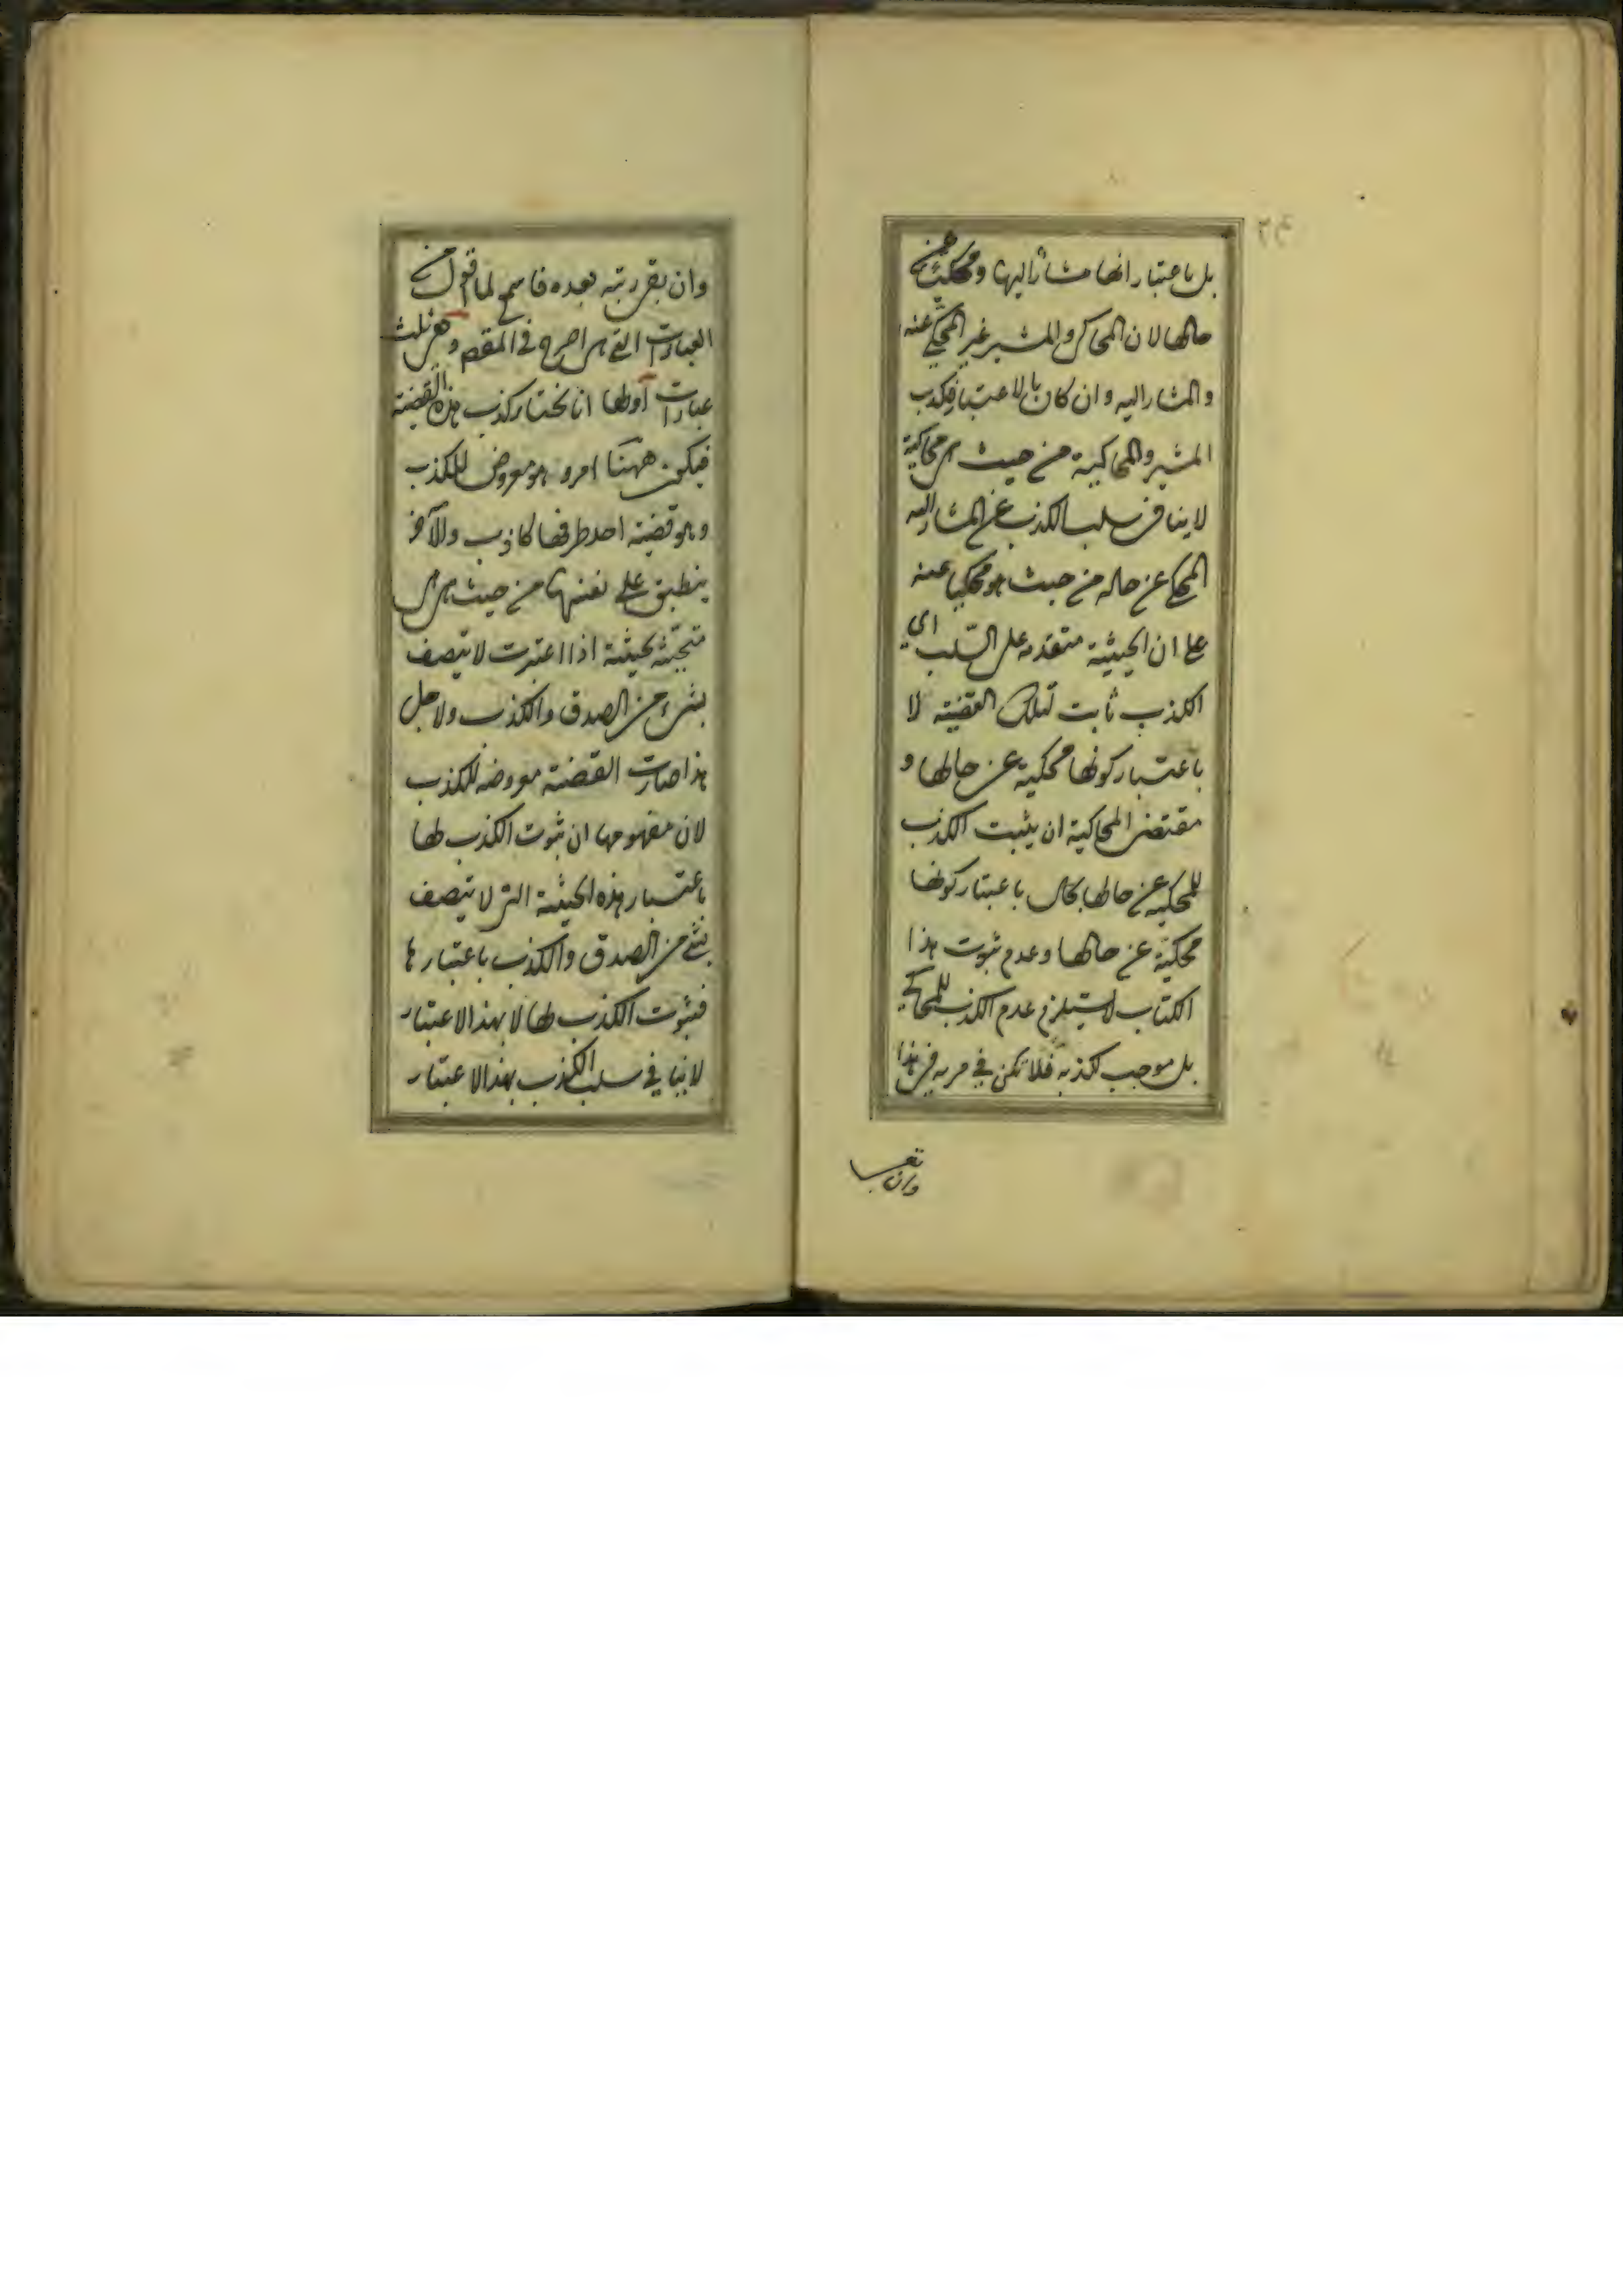 بل باعتبار انها مشارا اليها ومحكية عن
حالها لان المحاكي والمشير غير المحكي عنه
والمشار اليه وان كان بالاعتبار فكذب
المشير والمحاكية من حيث هي محاكية
لا ينافي سلب الكذب عن المشار اليه
المحكي عن حاله من حيث هو محكيا عنه
على ان الحيثية متقدمه على السلب اي
الكذب ثابت لتلك القضية لا
باعتبار كونها محكية عن حالها و
مقتضى المحاكية ان يثبت الكذب
للمحكية عن حالها بحال باعتبار كونها
محكية عن حالها وعدم ثبوت هذا
الكتاب لا يستلزم عدم الكذب للمحاكي
بل موجب لكذبه فلا تكن في مريه في هذا
وان
وان بقى ريبة بعده فاسمع لما اقول من
العبارات التي هي اصرح في المقصود هي ثلث
عبارات اولها انا نختار كذب هذه القضية
فيكون ههنا امر و هو معروض للكذب
وهو قضية احد طرفها كاذب والآخر
ينطبق على نفسها من حيث هي هي
متحيثه بحيثية اذا اعتبرت لا تتصف
بشيء من الصدق والكذب ولاجل
هذا صارت القضية معروضه للكذب
لان مفهومها ان ثبوت الكذب لها
باعتبار هذه الحيثية التي لا تتصف
بشئ من الصدق والكذب باعتبارها
فثبوت الكذب لها لا بهذا الاعتبار
لا ينافي سلب الكذب بهذا الاعتبار